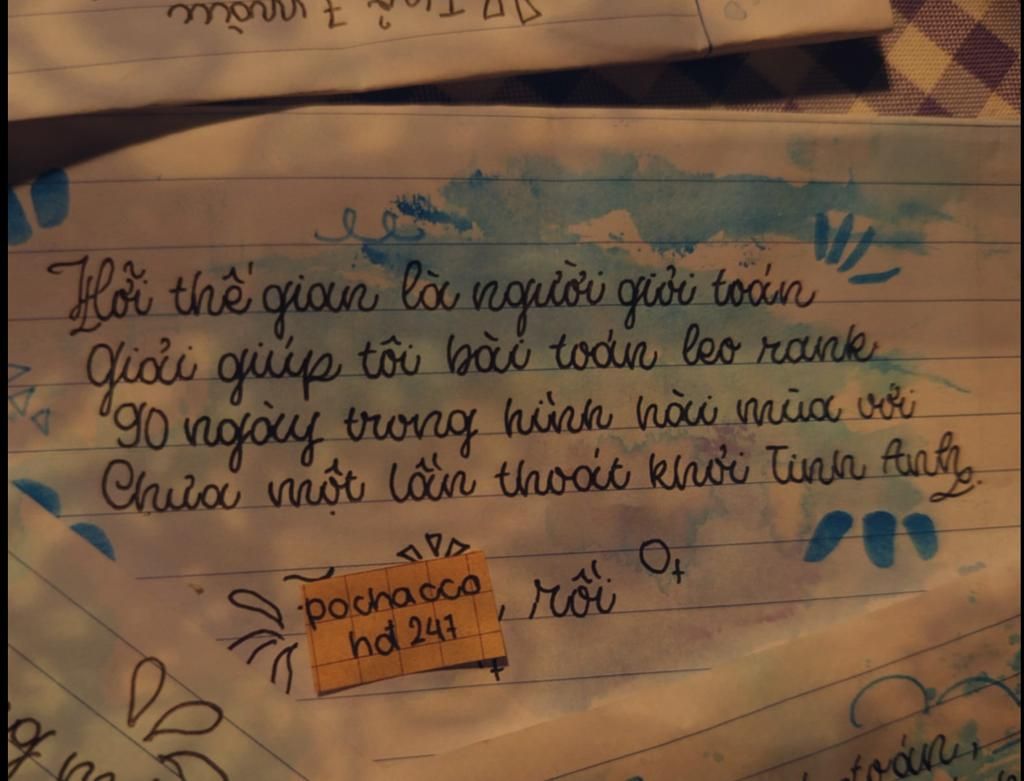 Hỡi thế gian là người giỏi toán
Giải giúp tôi bài toán leo rank
90 ngày trong hình hài mùa với
Chưa một lần thoát khỏi Tinh Anh.
pochacco
hd 247
, rồi